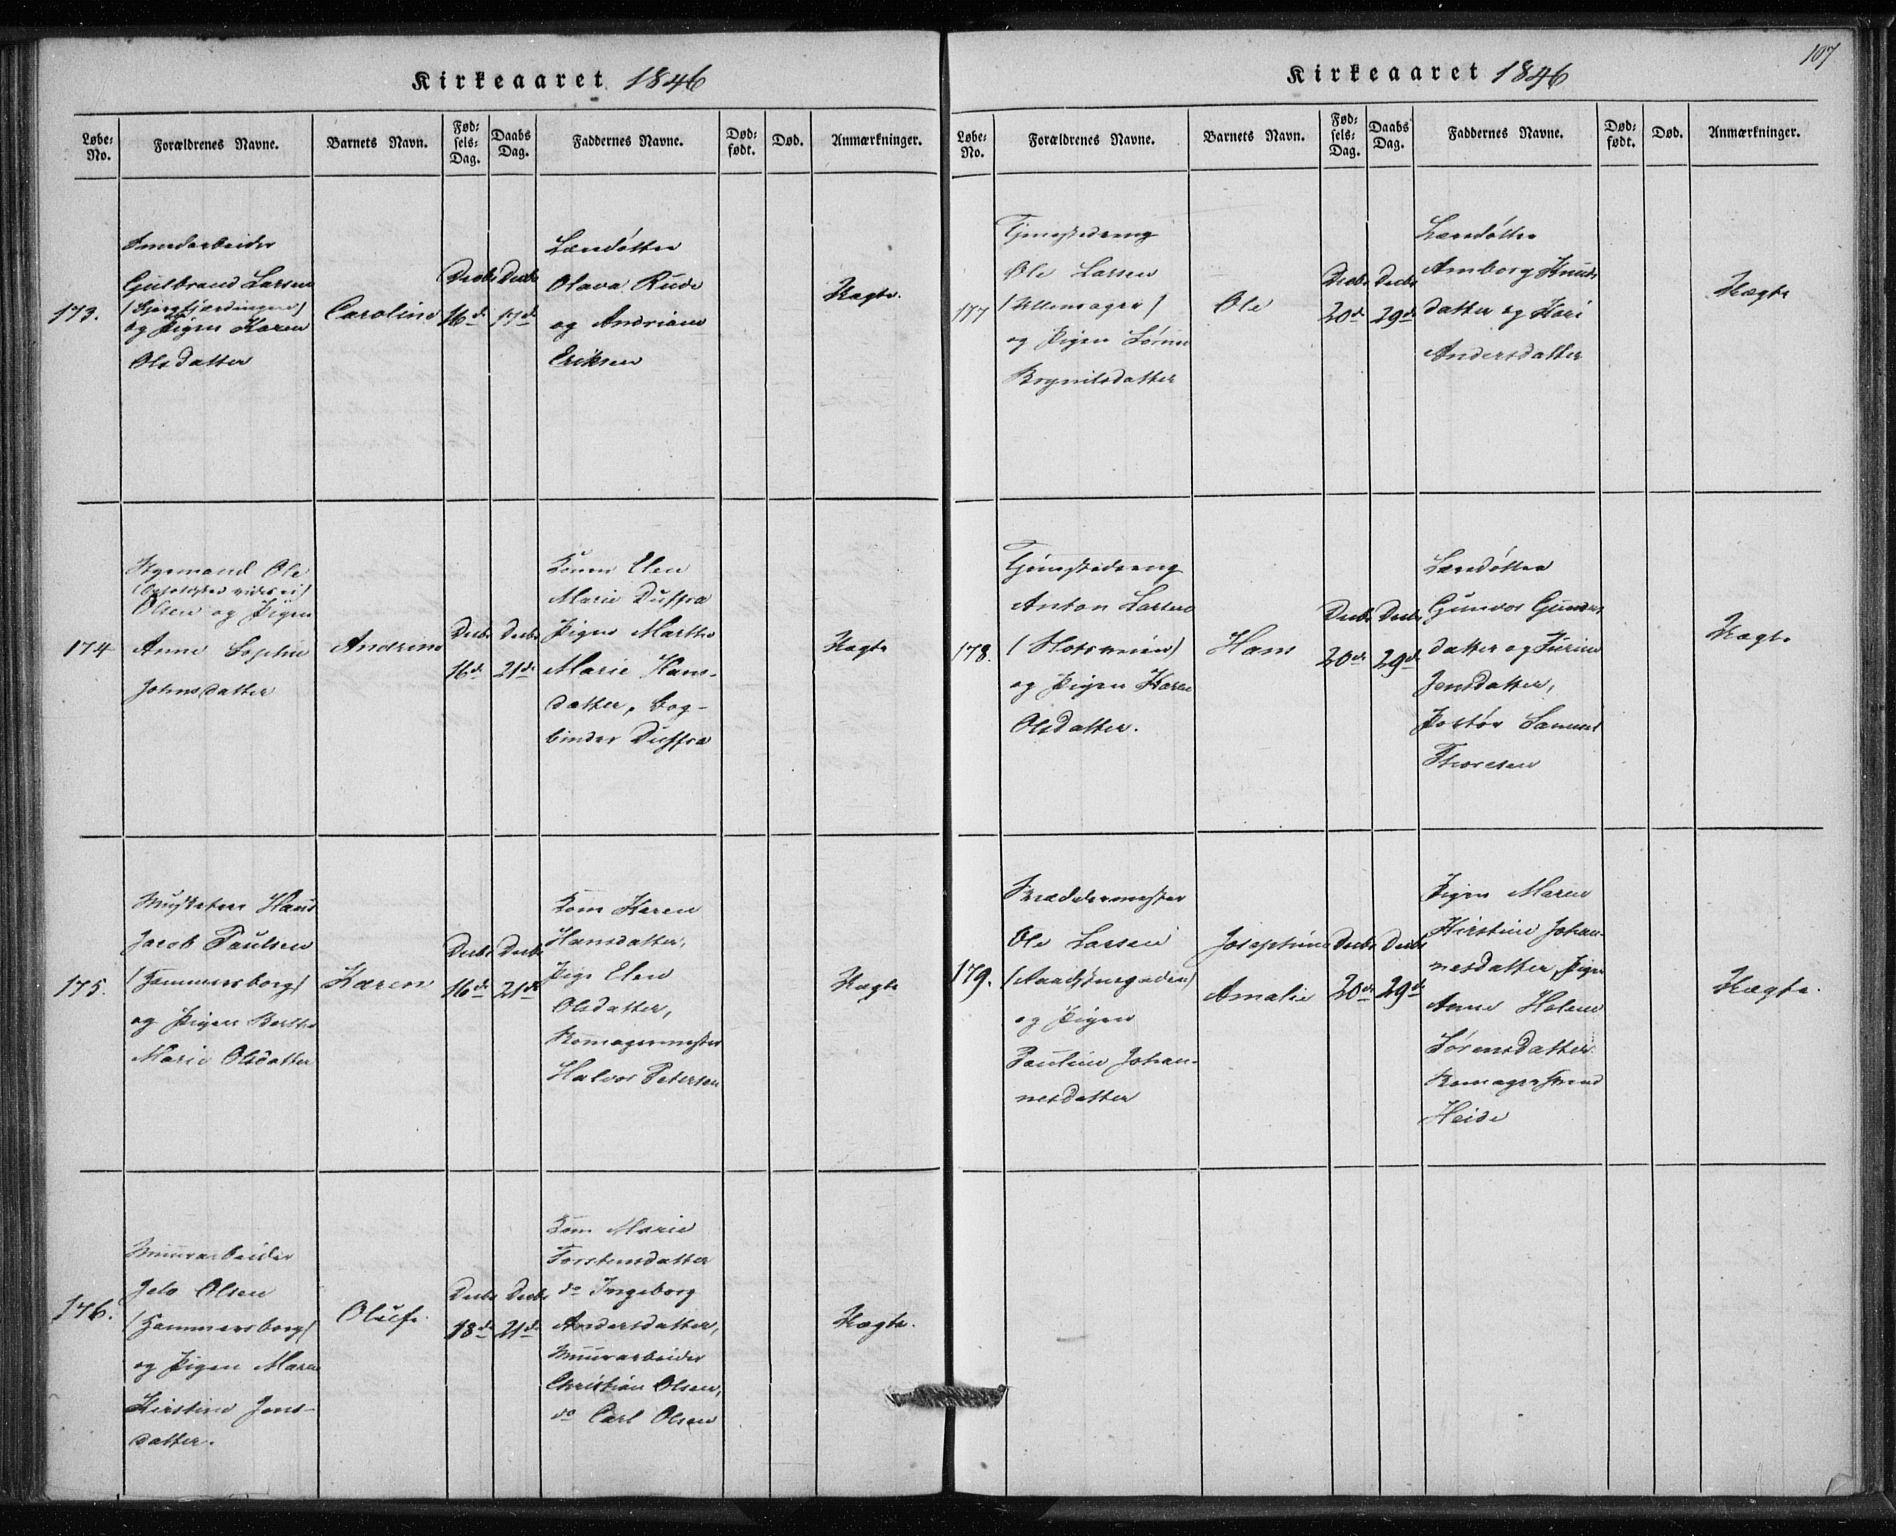 Kirkeaaret 1846
Løbe-No. Forældrenes Navne. Barnets Navn. Fød-sels-Dag. Daabs Dag. Faddernes Navne. Død-født. Død. Anmærkninger.
173.
Gulbrand Larsen
og Pigen Karen
Olsdatter
Caroline
Decbr
16de
Decbr
Olava Rude
og Andrian
Eriksen
Uægte.
174
Ole
Olsen og Pigen
Anne Sophie
Johnsdatter
Andrine
Decbr
16de
Decbr
21de
Konen Elen
Marie Duffra
Pigen Marthe
Marie Hans-
datter, Bog-
binder Duffra
Uægte
175.
Musketeer Hans
Jacob Paulsen
(Hammersborg)
og Pigen Berthe
Marie Olsdatter
Karen
Decbr
16de
Decbr
21de
Kone Karen
Hansdatter,
Pige Elen
Olsdatter,
Skomagermester
Halvor Petersen
Uægte
176.
Muurarbeider
Olsen
(Hammersborg)
og Pigen Maren
Kirstine Jens-
datter.
Olufe
Decbr
18de
Decbr
21de
Kone Marie
Torstensdatter
do Ingeborg
Andersdatter,
Muurarbeider
Christian Olsen,
do Carl Olsen
Uægte.
107
Kirkeaaret 1846
Løbe-No. Forældrenes Navne. Barnets Navn. Fød-sels-Dag. Daabs Dag. Faddernes Navne. Død-født. Død. Anmærkninger.
177
Tjenestedreng
Ole Larsen
og Pigen
Brynilsdatter
Ole
Decbr
20de
Decbr
29de
Amborg Knuds
datter og Kari
Andersdatter
Uægte
178.
Tjenestedreng
Anton Larsen
og Pigen Karen
Olsdatter.
Hans
Decbr
20de
Decbr
29de
Gunvor Gunders
datter og
Jensdatter,
Samuel
Thoresen
Uægte
179.
Skræddermester
Ole Larsen
(Raadhuusgaden)
og Pigen
Pauline Johan-
nesdatter
Josephine
Amalie
Decbr
20de
Decbr
29de
Pigen Maren
Kirstine Johan-
nesdatter, Pigen
Anne Helene
Sørensdatter
Skomagersvend
Heide
Uægte.